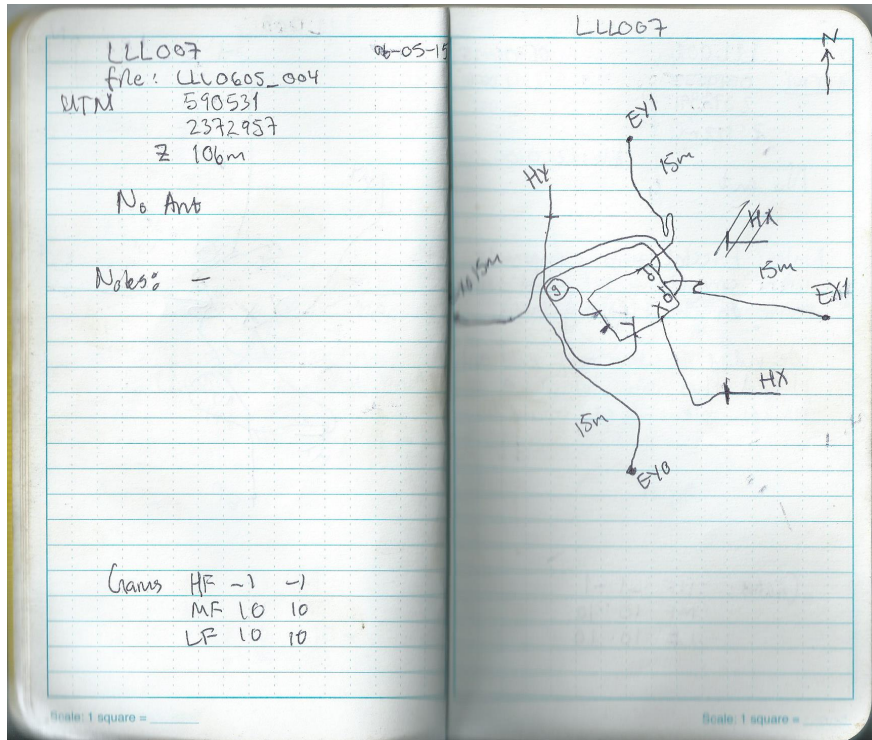 LLL007 06-05-15
file: LLL0605_004
UTM 590531
2372957
Z 106m
No Ant
Notes: —
Gains HF -1 -1
MF 10 10
LF 10 10
Scale: 1 square =
LLL007
N
EY1
15m
HY
HX
15m
15m
EX1
g
HX
15m
EY0
Scale: 1 square =